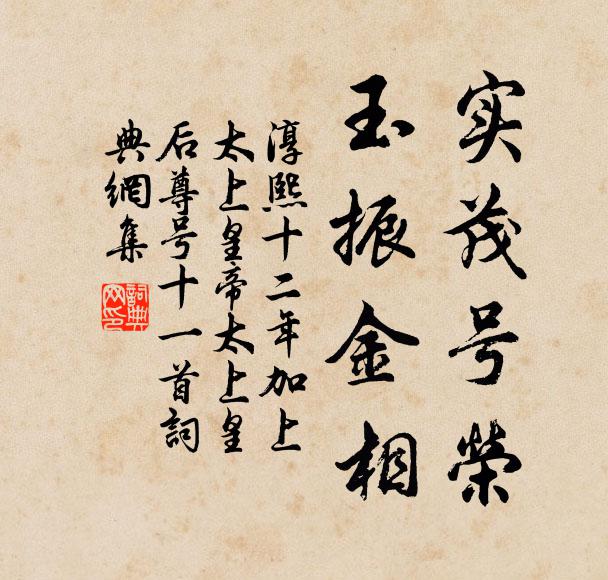 实茂号荣
玉振金相
淳熙十二年加上
太上皇帝太上皇
后尊号十一首詞
典網集
詞典網印